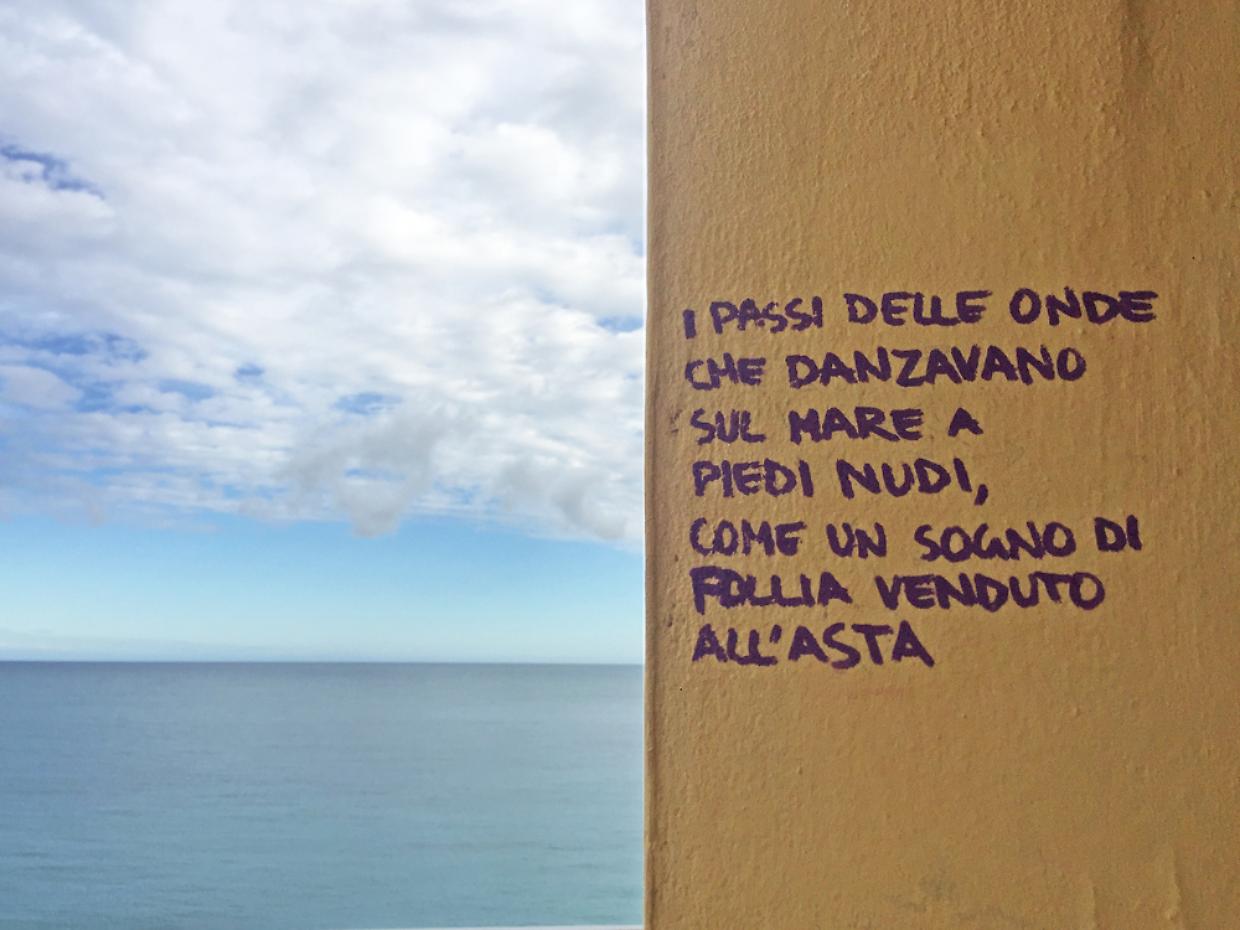 I PASSI DELLE ONDE
CHE DANZAVANO
SUL MARE A
PIEDI NUDI,
COME UN SOGNO DI
FOLLIA VENDUTO
ALL'ASTA